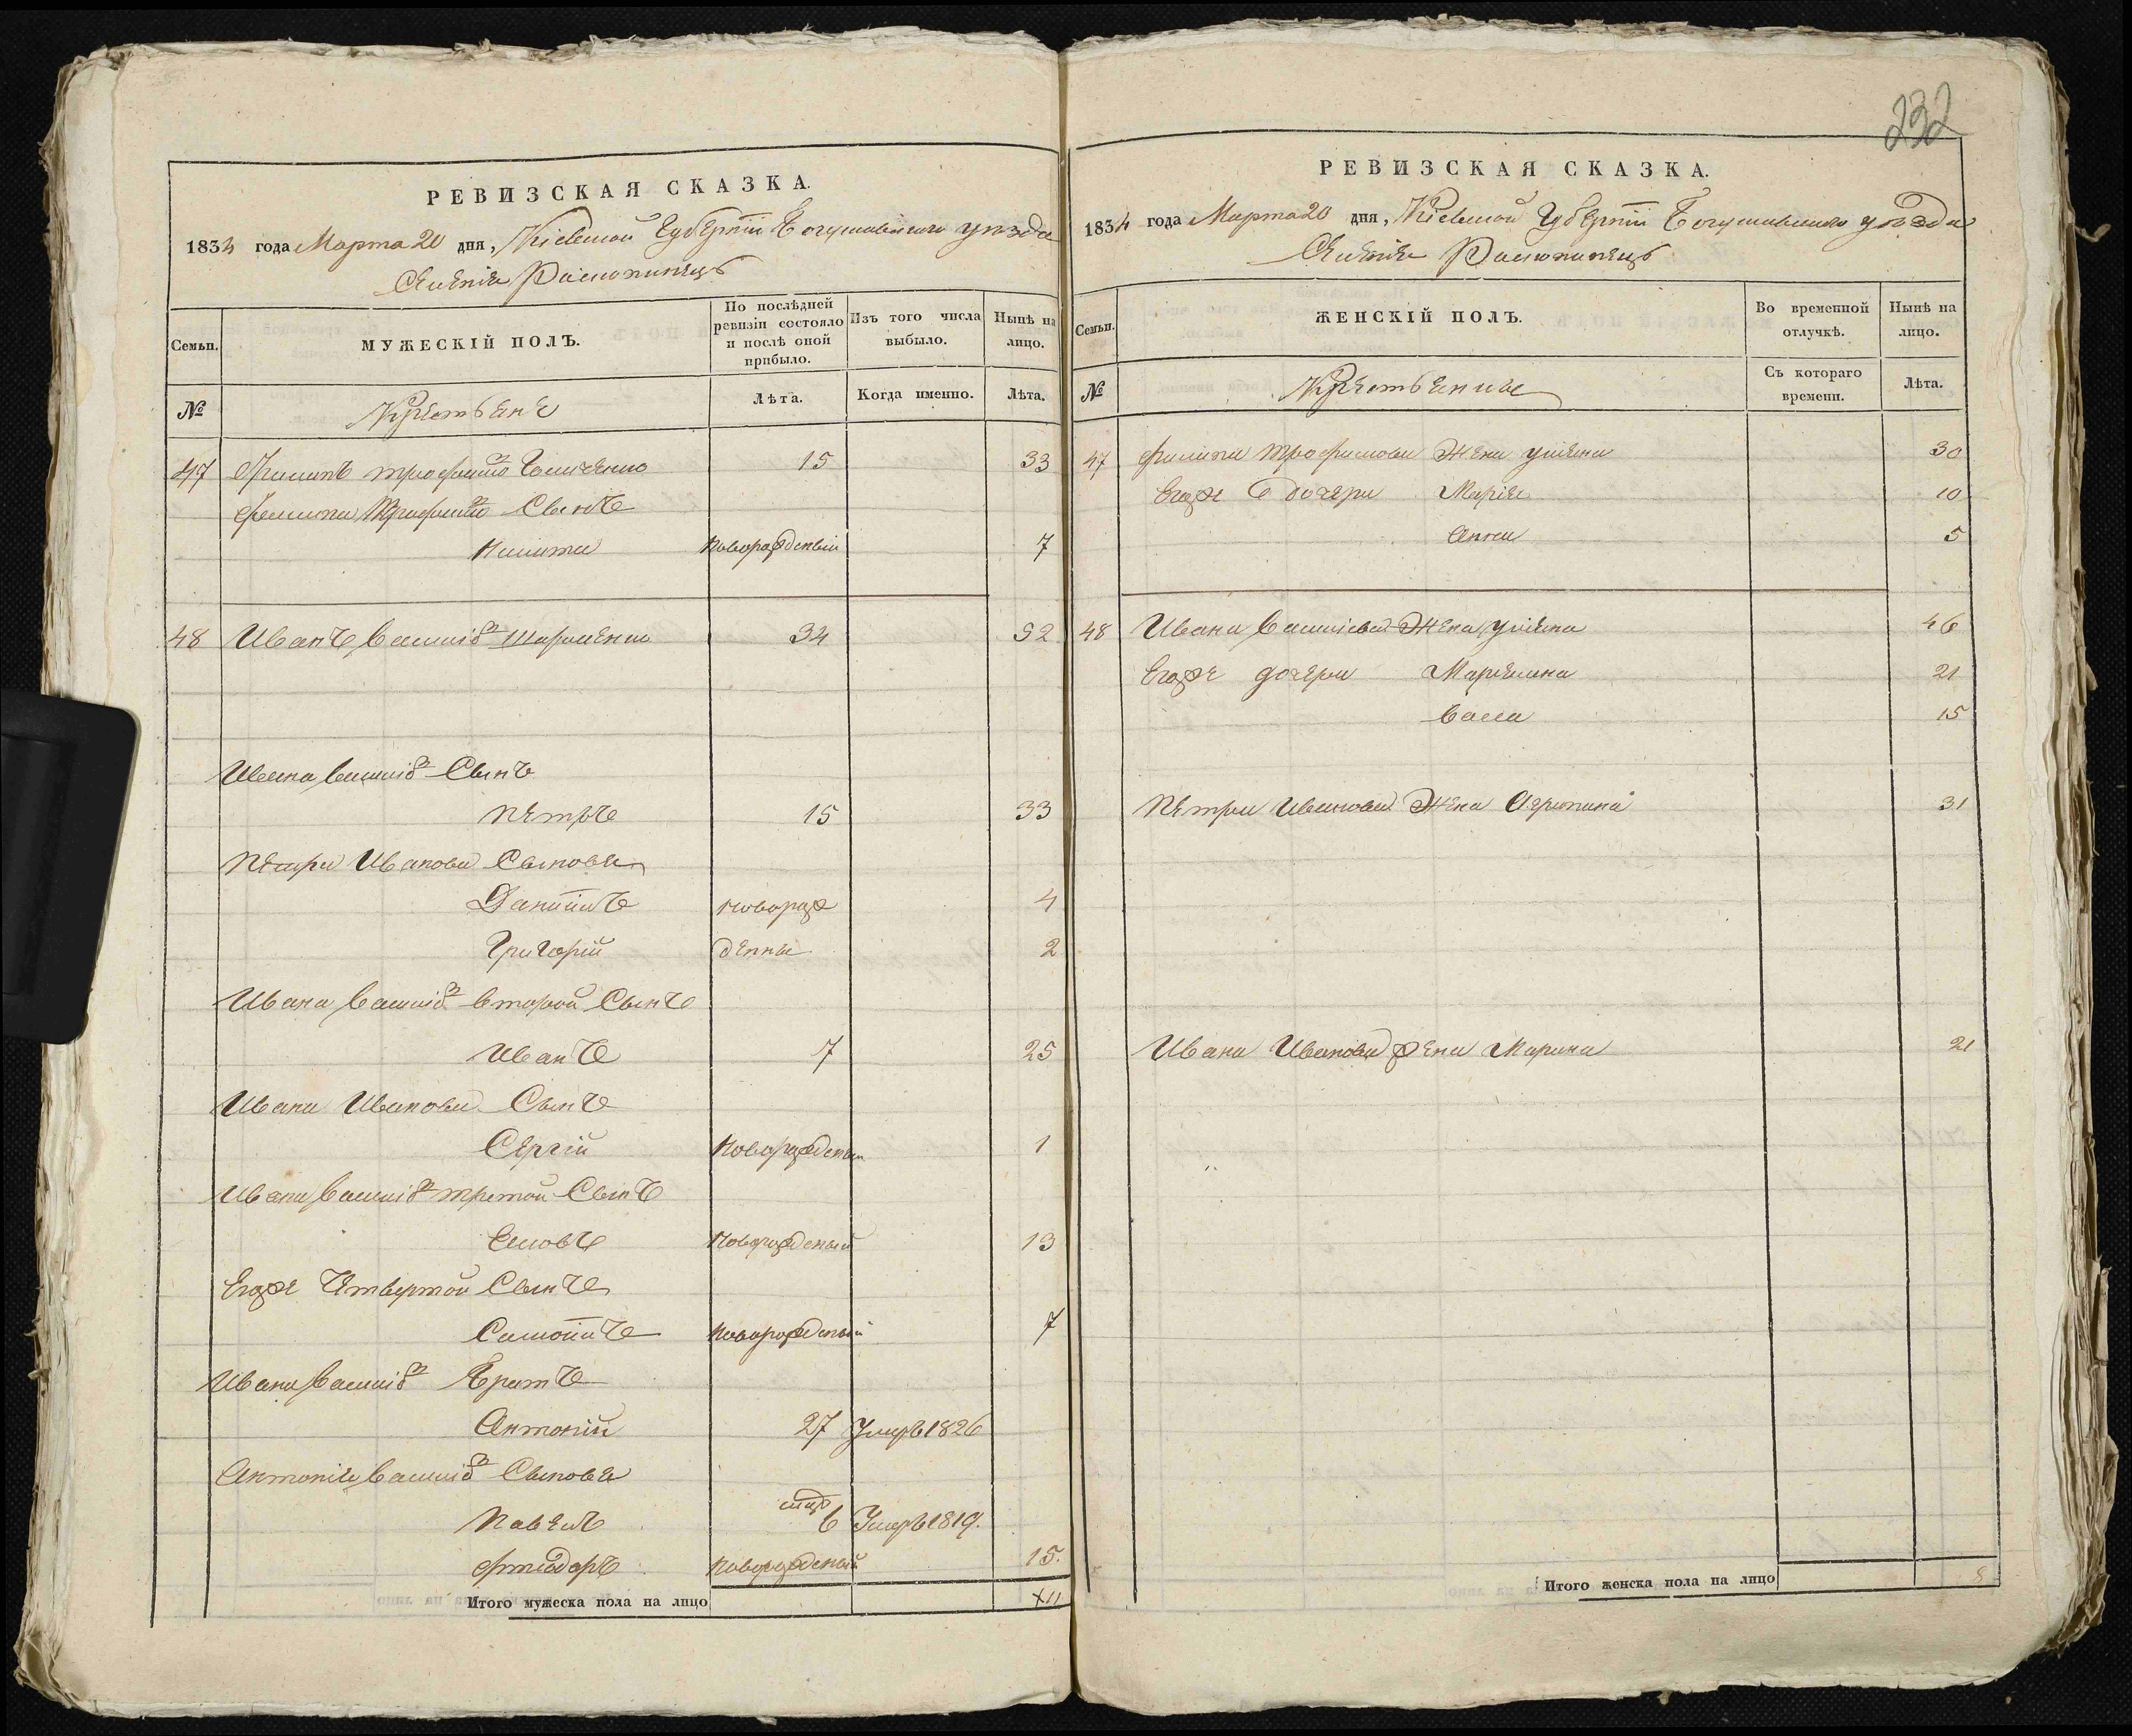 232
РЕВИЗСКАЯ СКАЗКА.
1834 года Марта 20 дня, Кіевской Губерніи Богуславского уѣзда
Селенія
Семьи.
МУЖЕСКІЙ ПОЛЪ.
По послѣдней ревизіи состояло и послѣ оной прибыло.
Изъ того числа выбыло.
Нынѣ на лицо.
№
Крестьяне
Лѣта.
Когда именно.
Лѣта.
47 Филипъ Трофимо 15 33
Филипа Трофимо Сынъ
Никита новорожденный 7
48 Иванъ Василіо 34 52
Ивана Василіо Сынъ
Петръ 15 33
Петра Иванова Сыновья
Даніилъ новорож 4
Григорій денные 2
Ивана Василіо второй Сынъ
Иванъ 7 25
Ивана Иванова Сынъ
Сергій новорожденный 1
Ивана Василіо третой Сынъ
новорожденный 13
Егоже Четвертой Сынъ
Самоилъ новорожденный 7
Ивана Василіо Братъ
Антоній 27 Умеръ 1826
Антонія Василіо Сыновья
Павелъ мцъ 6 Умеръ 1819.
Фтеодоръ новорожденный 15.
Итого мужеска пола на лицо 11
РЕВИЗСКАЯ СКАЗКА.
1834 года Марта 20 дня, Кіевской Губерніи Богуславского уѣзда
Селенія
Семьи.
ЖЕНСКІЙ ПОЛЪ.
Во временной отлучкѣ.
Нынѣ на лицо.
№
Съ котораго времени.
Лѣта.
47 Филипа Трофимова Жена Уліяна 30
Егоже дочери Марія 10
Анна 5
48 Ивана Василіева Жена Уліяна 46
Егоже дочери Маріанна 21
Васса 15
Петра Иванова Жена Агрипина 31
Ивана Иванова жена Марина 21
Итого женска пола на лицо 8